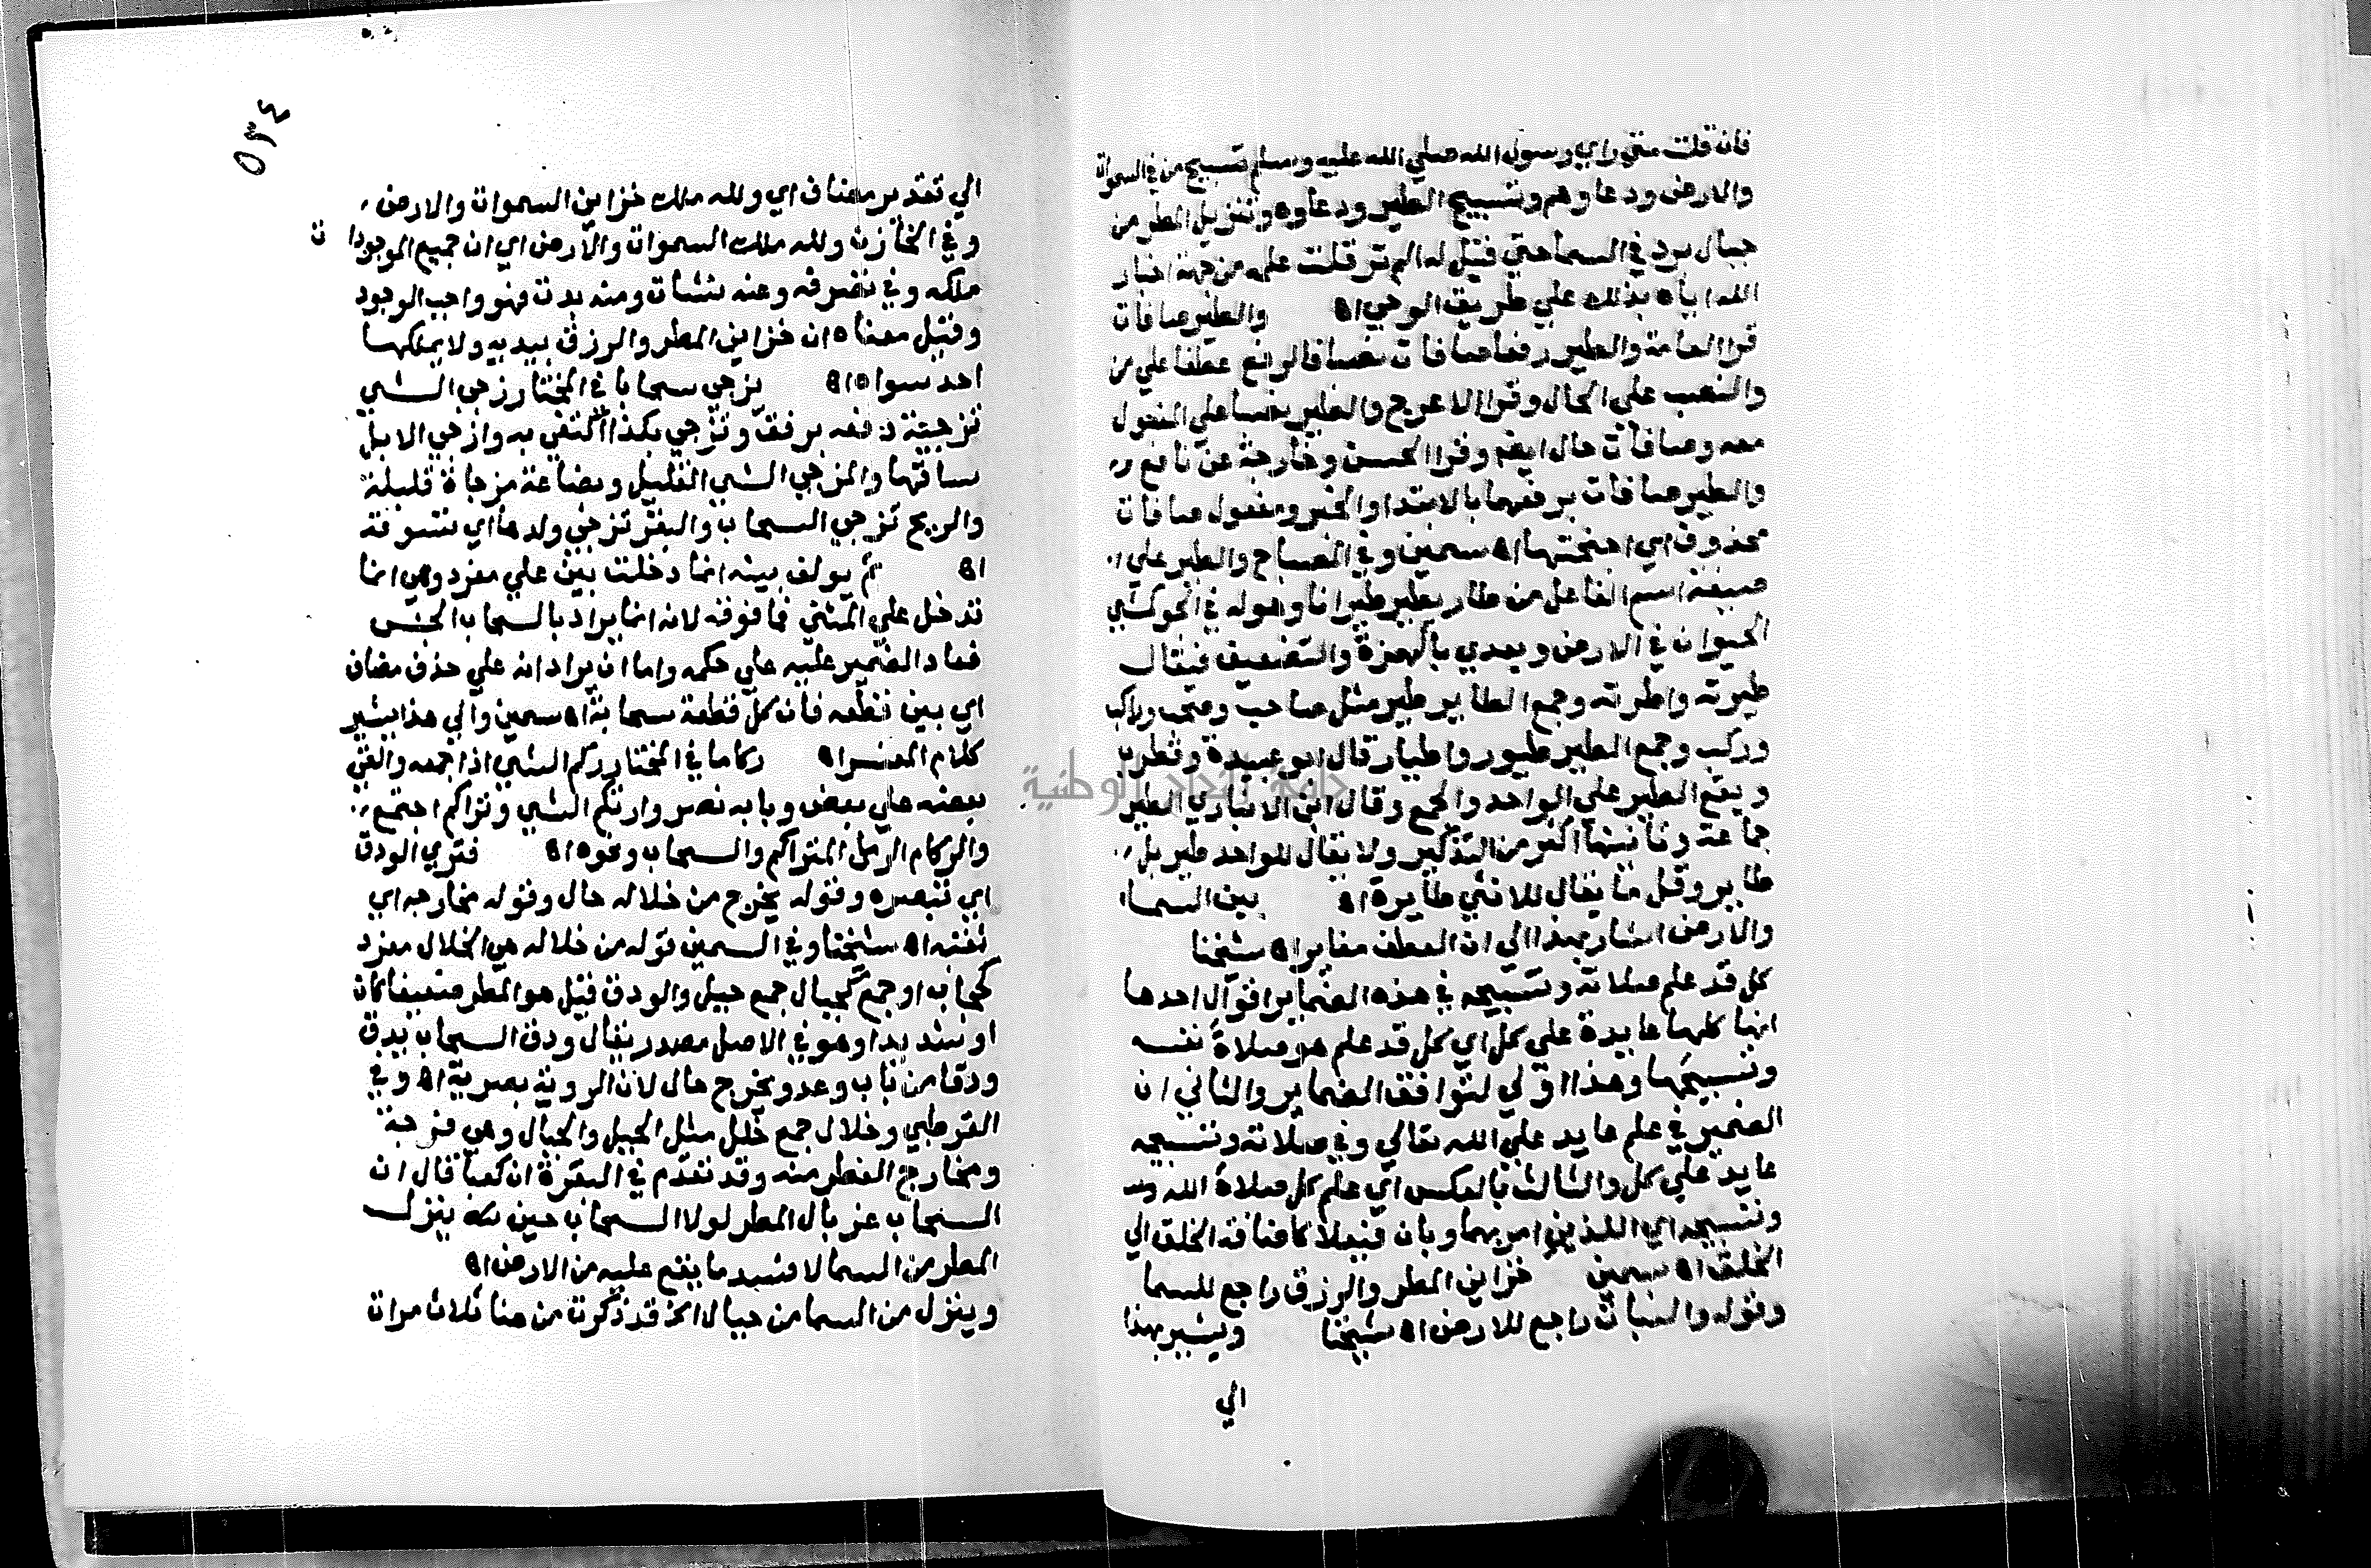 فان قلت متي راي رسول الله صلي الله عليه وسلم تسبيح من في السموات
والارض ودعاوهم وتسبيح الطير ودعاوه وتنزيل المطر من
جبال برد في السما حتي قيل له الم تر قلت علمه من جهة اخبار
الله اياه بذلك علي طريق الوحي اه والطير صافات
قرا العامة والطير رفعا صافات نصبا فالرفع عطفا علي من
والنصب علي الحال وقرا الاعرج والطير نصبا علي المفعول
معه وصافات حال ايضا وقرا الحسن وخارجة عن نافع
والطير صافات برفعهما بالابتدا والخبر ومفعول صافات
محذوف اي اجنحتها اه سمين وفي المصباح والطير علي
صيغة اسم الفاعل من طار يطير طيرانا وهو له في الجو كمشي
الحيوان في الارض ويعدي بالهمزة والتضعيف فيقال
طيرته واطرته وجمع الطاير طير مثل صاحب وصحب وراكب
وركب وجمع الطير طيور واطيار قال ابو عبيدة وقطرب
ويقع الطير علي الواحد والجمع وقال ابن الانباري الطير
جماعة وتانيثها اكثر من التذكير ولا يقال للواحد طير بل
طاير وقل ما يقال للانثي طايرة اه بين السما
والارض اشار بهذا الي ان العطف مغاير اه شيخنا
كل قد علم صلاته وتسبيحه في هذه الضماير اقوال احدها
انها كلها عايدة علي كل اي كل قد علم هو صلاة نفسه
وتسبيحها وهذا اولي لتوافق الضماير والثاني ان
الضمير في علم عايد علي الله تعالي وفي صلاته وتسبيحه
عايد علي كل والثالث بالعكس اي علم كل صلاة الله
وتسبيحه اي اللذين امر بهما وبان فيعلا كاضافة الخلق الي
الخلق اه سمين خزاين المطر والرزق راجع للسما
وقوله والنبات راجع للارض اه شيخنا ويشير بهذا
الي
٥٣٤
الي تقدير مضاف اي ولله ملك خزاين السموات والارض
وفي الخازن ولله ملك السموات والارض اي ان جميع الموجودات
ملكه وفي تصرفه وعنه نشات ومنه بدت فهو واجب الوجود
وقيل معناه ان خزاين المطر والرزق بيديه ولا يملكها
احد سواه اه يزجي سحابا في المختار زجي الشي
تزجية دفعه برفق وتزجي بكذا اكتفي به وازجي الابل
ساقها والمزجي الشي القليل وبضاعة مزجاة قليلة
والريح تزجي السحاب والبقر تزجي ولدها اي تسوقه
اه ثم يولف بينه انما دخلت بين علي مفرد وهي انما
تدخل علي المثني فما فوقه لانه انما يراد بالسحاب الجنس
فعاد الضمير عليه علي حكمه واما ان يراد انه علي حذف مضاف
اي بين قطعه فان كل قطعة سحابة اه سمين والي هذا يشير
كلام المفسر اه ركاما في المختار ركم الشي اذا جمعه والقي
بعضه علي بعض وبابه نصر وارتكم الشي وتراكم اجتمع
والركام الرمل المتراكم والسحاب ونحوه اه فتري الودق
اي تبصره وقوله يخرج من خلاله حال وقوله مخارجه اي
ثقبه اه شيخنا وفي السمين قوله من خلاله هي الخلال مفرد
كحجاب او جمع كجبال جمع جبل والودق قيل هو المطر ضعيفا كان
او شديدا وهو في الاصل مصدر يقال ودق السحاب يدق
ودقا من باب وعد ويخرج حال لان الروية بصرية اه وفي
القرطبي وخلال جمع خلل مثل الجبل والجبال وهي فرجه
ومخارج القطر منه وقد تقدم في البقرة ان كعبا قال ان
السحاب غربال المطر لولا السحاب حين ينزل
المطر من السما لافسد ما يقع عليه من الارض اه
وينزل من السما من جبال الخ قد ذكرت من هنا ثلاث مرات